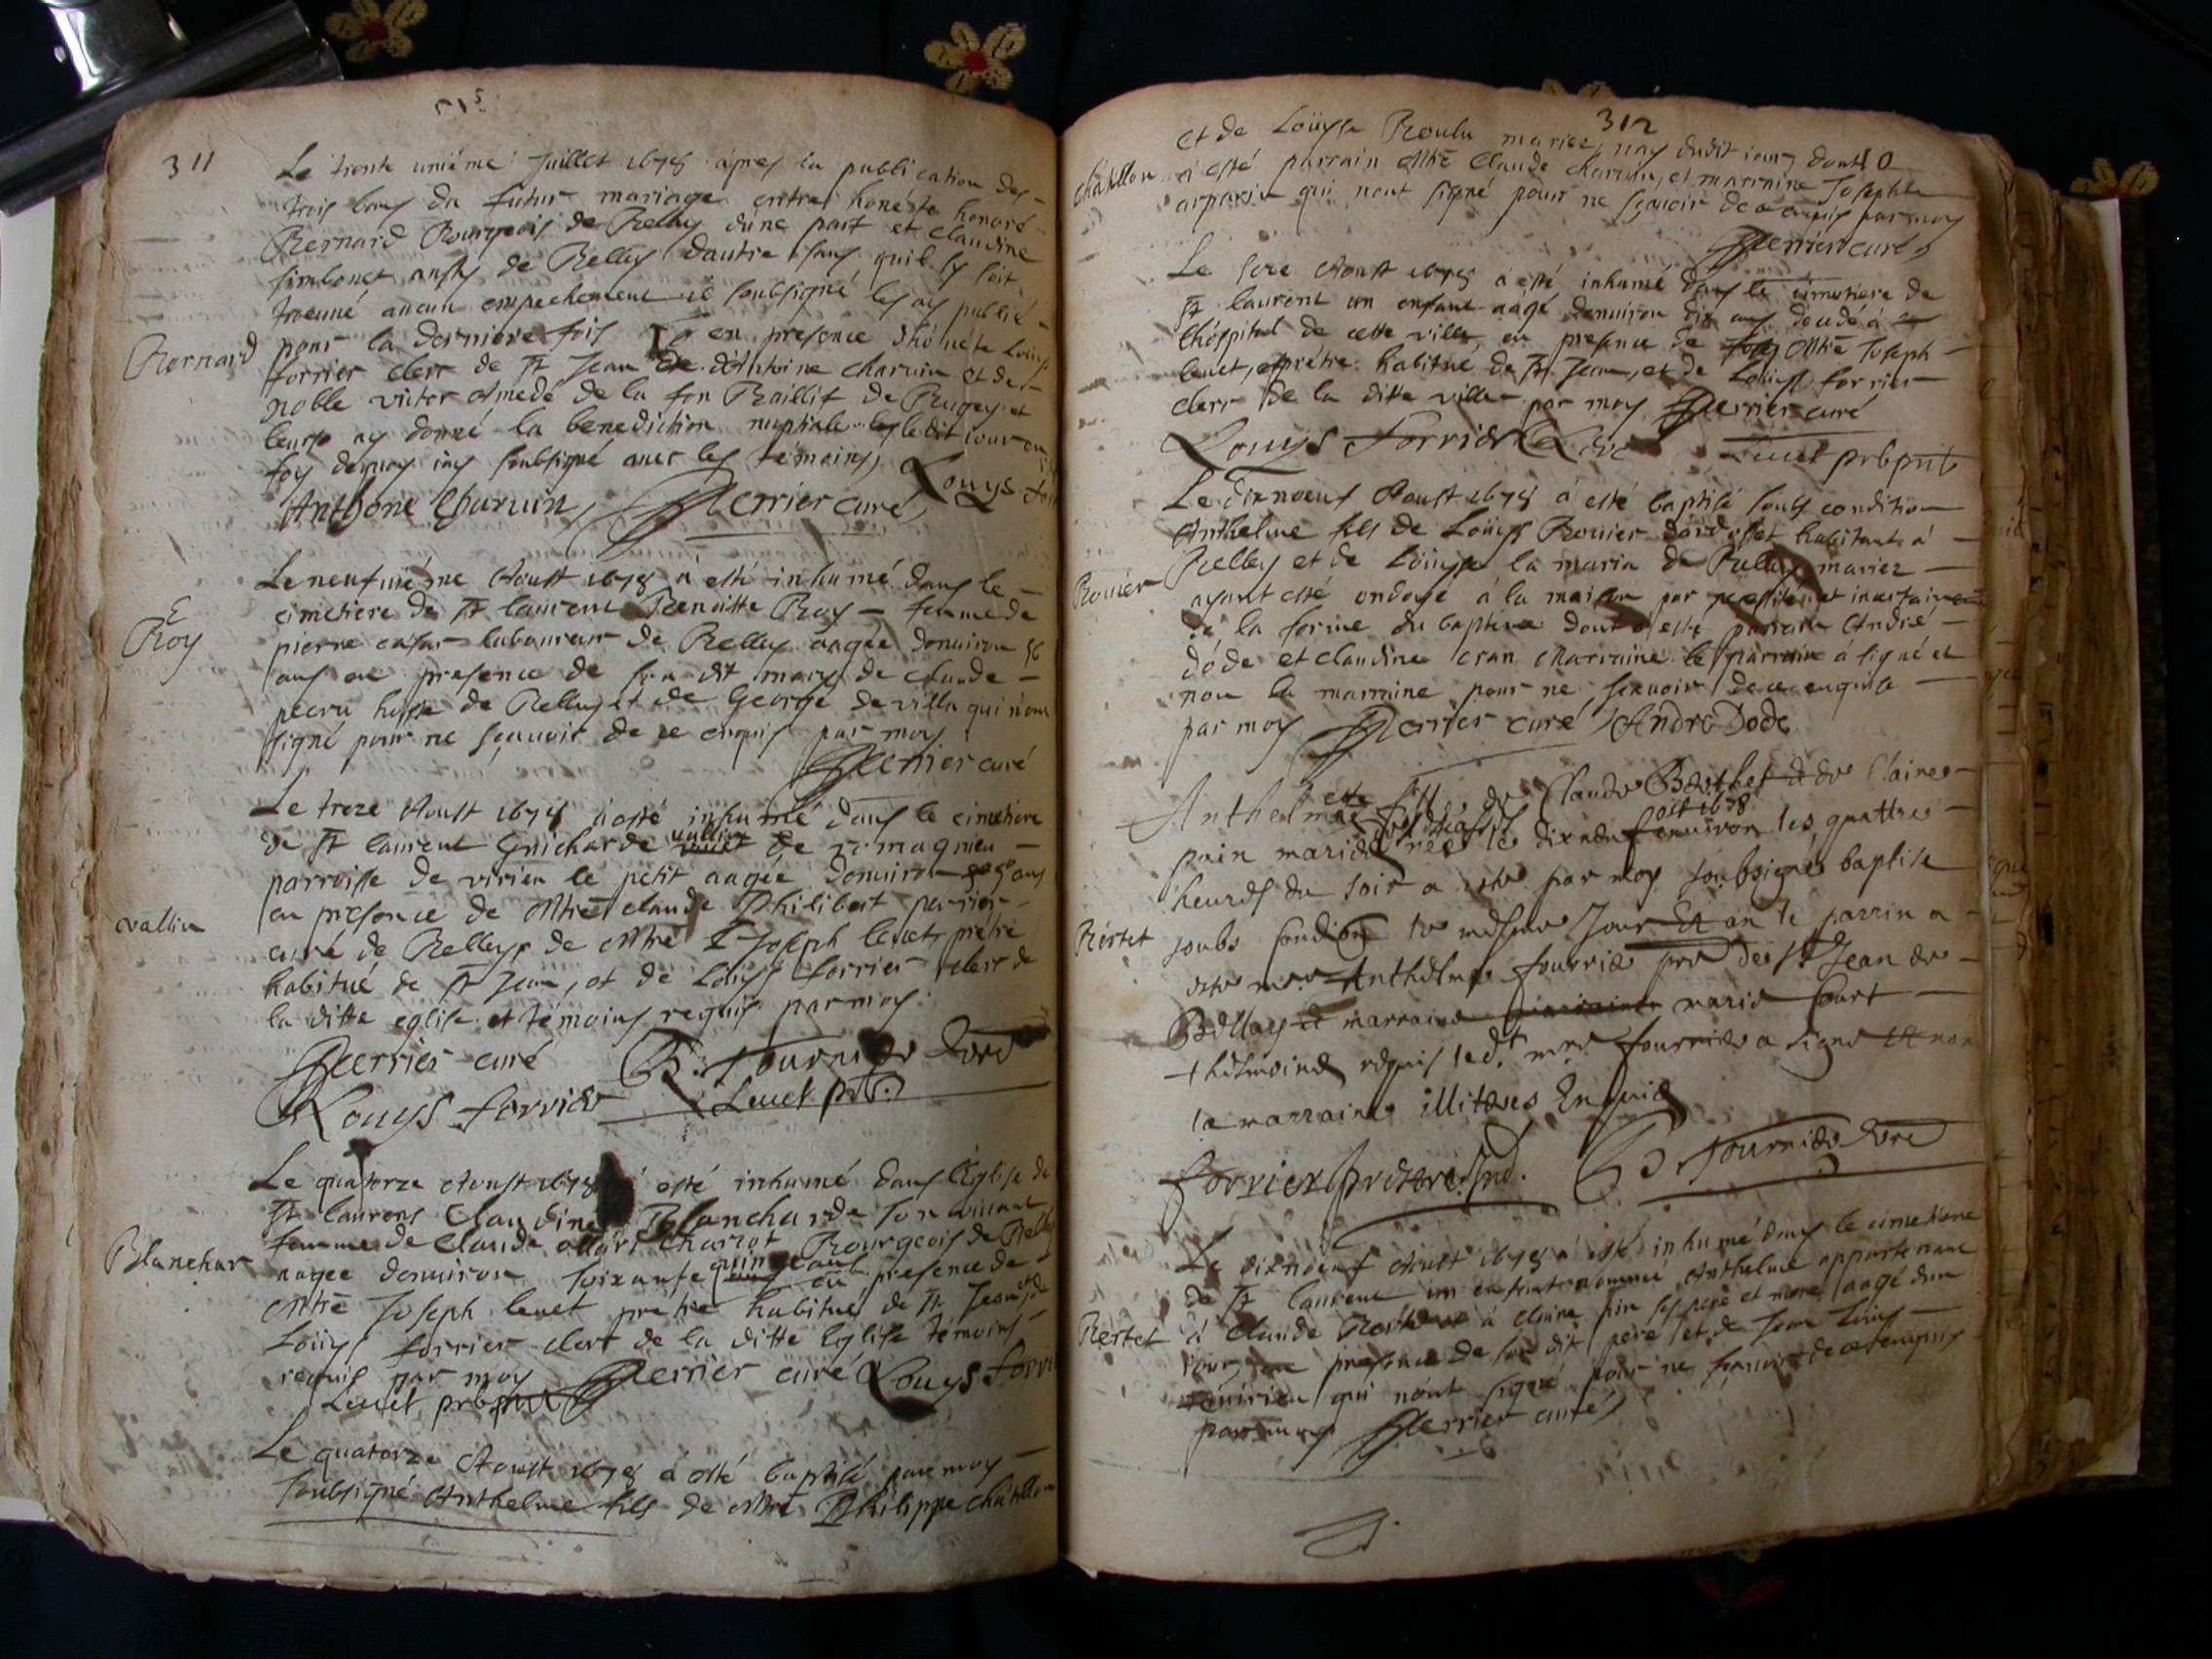 311
Le trente uniéme Juillet 1678 apres la publication des
trois bans du futur mariage entre honeste honoré
Bernard Bourgeois de Belley dune part et claudine
simbonet aussy de Belley dautre sans quil sy soit
treuué aucun empechement ie soubsigné les ay publié
Bernard
pour la derniere fois en presence dhonéste Louys
forrier clerc de St Jean de dAntoine charuin et de
noble victor Amedé de la fon Baillif de Bugey et
leurs ay donné la benediction nuptiale ledit iour en
foy dequoy iay soubsigné auec les témoins,
Anthone Charuin, Perrier curé, Louys
Le neufuiéme Aoust 1678 a esté inhumé dans le
cimetiere de St laurent Benoitte Roy femme de
Roy
pierre laboureur de Belley aagée denuiron 56
ans en presence de son dit mary de claude
hoste de Belley et de George de villa qui n'ont
signé pour ne sçauoir de ce enquis par moy
Perrier curé
Le treze Aoust 1678 a esté inhumé dans le cimetiere
de St laurent Guicharde vallin de romagnieu
parroisse de virieu le petit aagée denuiron ans
en presence de Mre claude Philibert perrier
vallin
curé de Belley de Mre Joseph leuet prétre
habitué de St Jean, et de Louys forrier clerc de
la ditte eglise et témoins requis par moy
Perrier curé B. Fournier
Louys forrier Leuet pbr.
Le quatorze Aoust 1678 a esté inhumé dans l'Eglise de
St laurens Claudine Blancharde son viuant
femme de Claude charrot Bourgeois de Belley
Blanchar
aagee denuiron soixante quinze ans en presence de
Mre Joseph leuet pretre habitué de St Jean et de
Loüys forrier clerc de la ditte Eglise témoins
requis par moy Perrier curé Louys forrier
Leuet pbr
Le quatorze Aoust 1678 a esté baptisé par moy
soubsigné Anthelme fils de Mre Philippe chatillon
312
et de Loüyse Roulu mariez, nay dudit iour, dont
chatillon
a esté parrain Mre Claude charuin, et marraine Josephte
qui nont signé pour ne sçauoir de ce enquis par moy
Perrier curé,
Le seze Aoust 1678 a esté inhumé dans le cimetiere de
St laurent un enfant aagé denuiron dix ans decedé à
lhôspital de cette ville, en presence de Mre Joseph
leuet, prétre habitué de St Jean, et de Loüys forrier
clerc de la ditte ville par moy Perrier curé
Louys Forrier Clerc Leuet pbr
Le dixneuf Aoust 1678 a esté baptisé soubs condition
Anthelme fils de Loüys Rouier habitant à
Belley et de Loüyse la maria de Belley mariez
Rouier
ayant esté ondoyé à la maison par et incertain
de la forme du baptéme dont a esté parrain André
dóde et claudine cran Marraine le parrain à signé et
non la marraine pour ne sçauoir de ce enquise
par moy Perrier curé Andre Dode
Anthelmette fille de Claude Berthet et de Claine
pain mariés née le dixneuf aost 1678 enuiron les quattre
heures du soir a este par moy soubsigné baptisé
Bértet
soubs condition le mesme Jour et an le parrin a
este mre Anthelme fourrier pre de St Jean de
Belley et marraine marie Court
thesmoins requis led.t mre fourrier a signe et non
la marraine illiteres Enquis
forrier pretre B. Fournier
Le dixneuf Aoust 1678 a esté inhumé dans le cimetiere
de St laurent un enfant nommé Anthelme appartenant
Bertet
à Claude Bertet et à claine pin ses pere et mere aagé dun
iour, en presence de son dit pere et de Jean Louys
qui n'ont signé pour ne sçauoir de ce enquis
par moy Perrier curé,